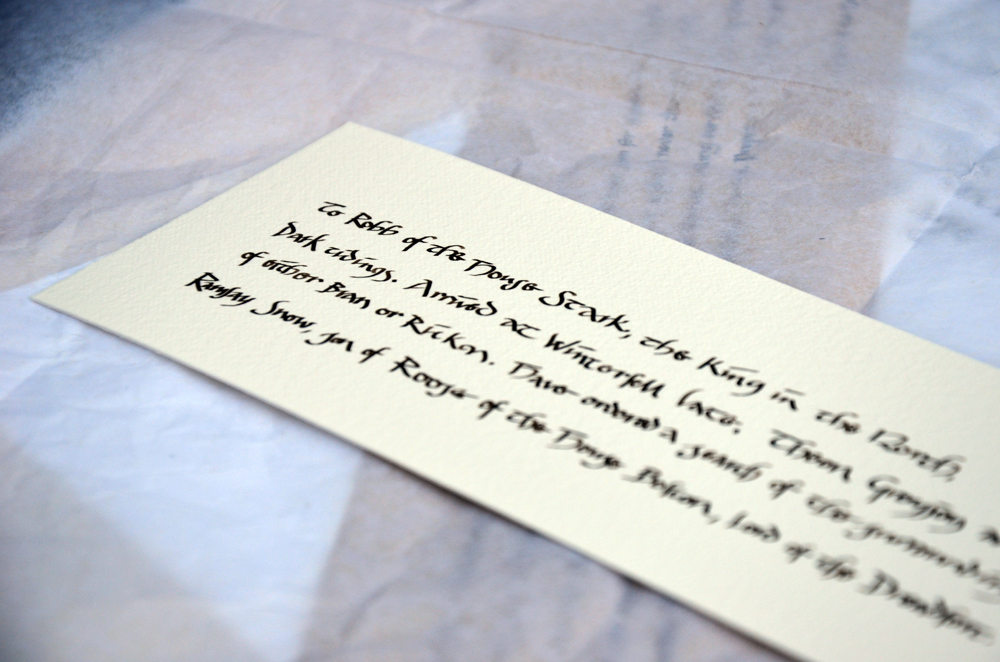 To Robb of the House Stark, the King in the North,
Dark tidings. Arrived at Winterfell late. Theon Greyjoy
of either Bran or Rickon. Have ordered a search of the
Ramsay Snow, son of Roose of the House Bolton, lord of the Dreadfort.